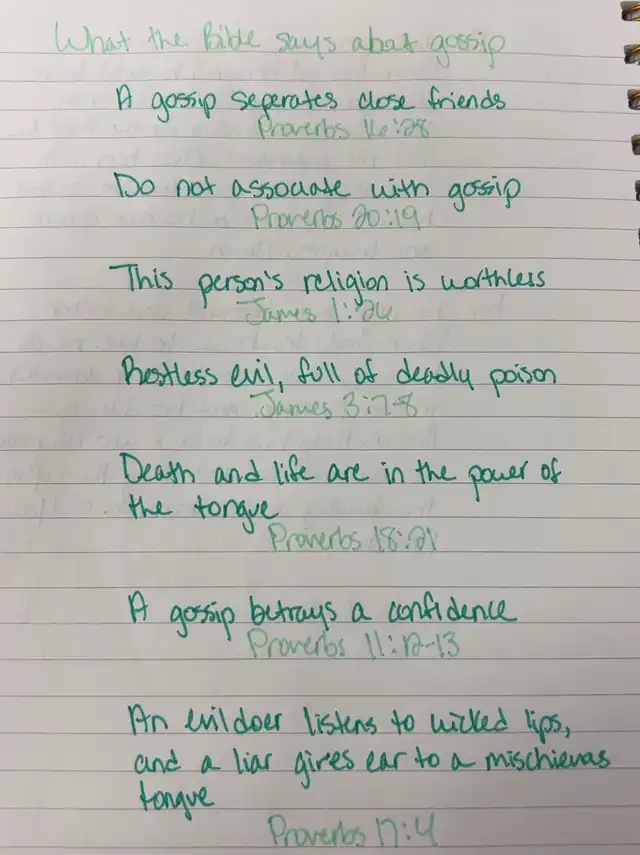 What the Bible says about gossip
A gossip seperates close friends
Proverbs 16:28
Do not associate with gossip
Proverbs 20:19
This person's religion is worthless
James 1:26
Restless evil, full of deadly poison
James 3:7-8
Death and life are in the power of
the tongue
Proverbs 18:21
A gossip betrays a confidence
Proverbs 11:12-13
An evildoer listens to wicked lips,
and a liar gives ear to a mischievas
tongue
Proverbs 17:4